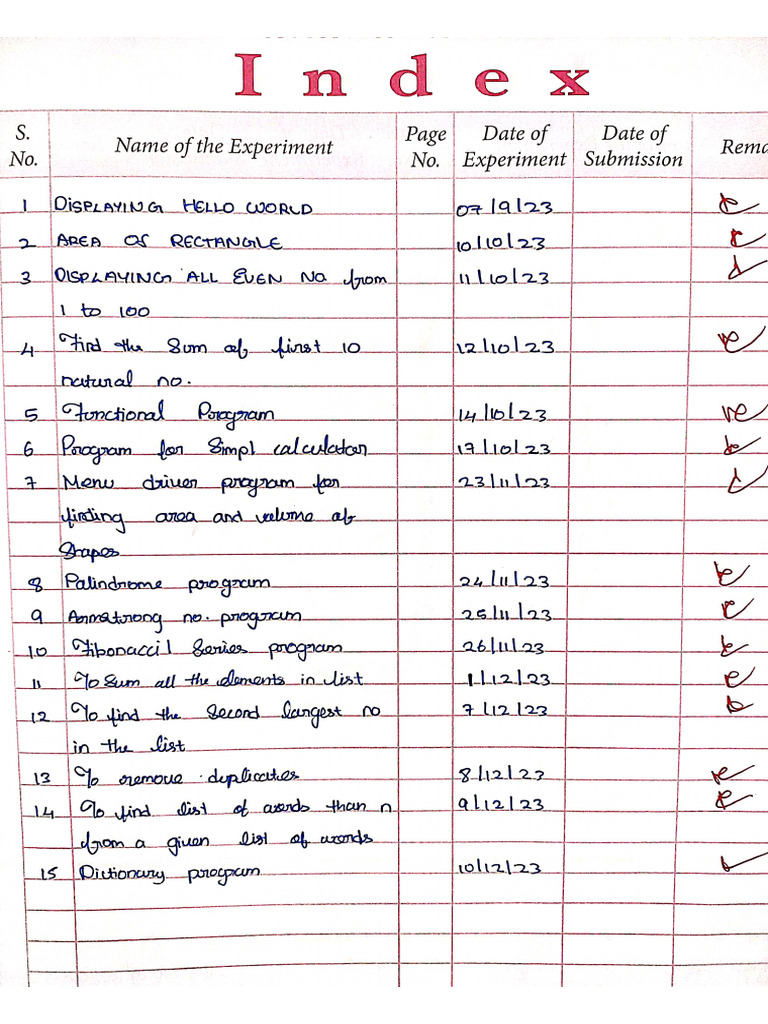 Index
S. No. Name of the Experiment Page No. Date of Experiment Date of Submission Rema
1 DISPLAYING HELLO WORLD 07/9/23
2 AREA OF RECTANGLE 10/10/23
3 DISPLAYING ALL EVEN NO from 11/10/23
1 to 100
4 Find the Sum of first 10 12/10/23
natural no.
5 Functional Porogram 14/10/23
6 Porogram for Simpl calculator 17/10/23
7 Menu driver program for 23/11/23
finding area and volume of
Shapes
8 Palindrome program 24/11/23
9 Armstrong no. program 25/11/23
10 Fibonacci Series program 26/11/23
11 To Sum all the elements in list 1/12/23
12 To find the Second largest no 7/12/23
in the list
13 To remove duplicates 8/12/23
14 To find list of words than n 9/12/23
from a given list of words
15 Dictionary program 10/12/23